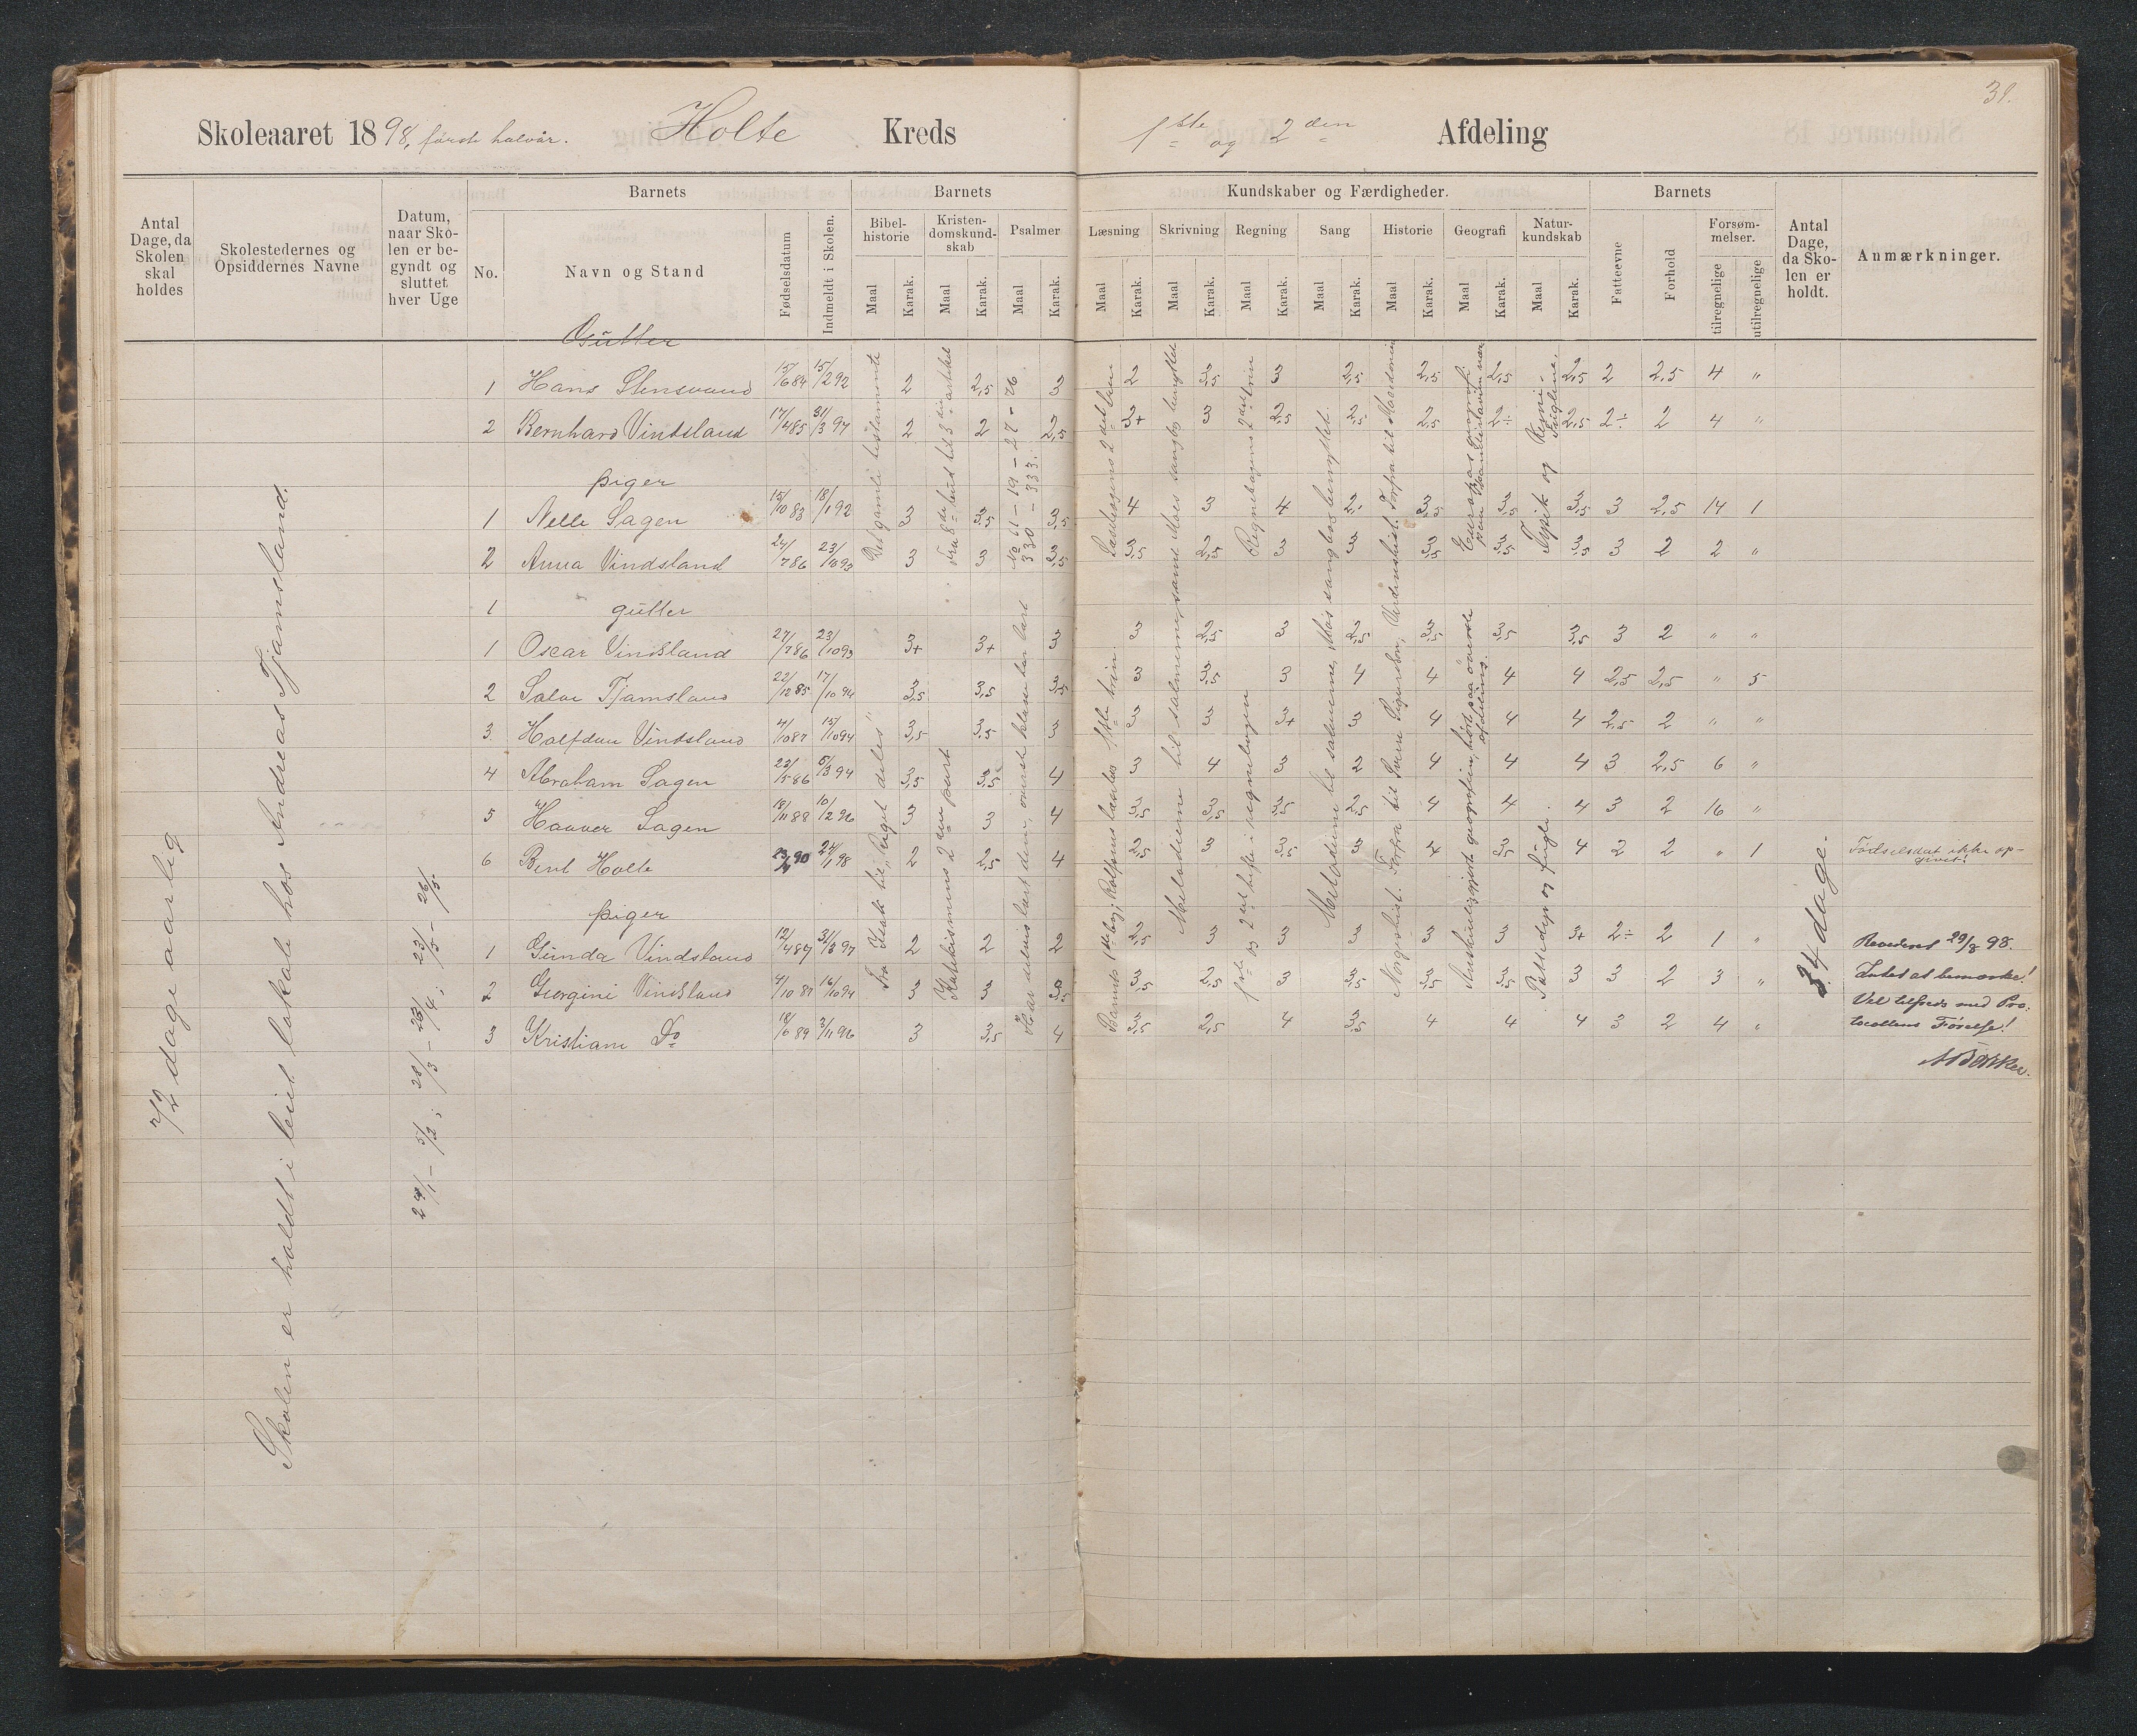 31.
Skoleaaret 1898, første halvår. Holte Kreds 1ste og 2den Afdeling
Antal Dage, da Skolen skal holdes
Skolestedernes og Opsiddernes Navne
Datum, naar Skolen er begyndt og sluttet hver Uge
Barnets
No.
Navn og Stand
Fødselsdatum
Indmeldt i Skolen.
Barnets
Kundskaber og Færdigheder.
Bibelhistorie
Kristendomskundskab
Psalmer
Læsning
Skrivning
Regning
Sang
Historie
Geografi
Naturkundskab
Maal Karak. Maal Karak. Maal Karak. Maal Karak. Maal Karak. Maal Karak. Maal Karak. Maal Karak. Maal Karak. Maal Karak.
Barnets
Fatteevne
Forhold
Forsømmelser.
tilregnelige
utilregnelige
Antal Dage, da Skolen er holdt.
Anmærkninger.
72 dage aarlig
Skolen er holdt i leiet lokale hos Andreas Tjamsland.
24/1 – 5/2; 28/3 – 23/4; 23/5 – 26/5
Gutter
1 Hans Stensvand 15/6 84 15/2 92 2 2,5 3 2 3,5 3 2,5 2,5 2,5 2,5 2 2,5 4 "
2 Bernhard Vindsland 17/4 85 31/3 97 2 2 2,5 3+ 3 2,5 2,5 2,5 2÷ 2,5 2÷ 2 4 "
piger
1 Nelle Sagen 15/10 83 18/1 92 3 3,5 3,5 4 3 4 3,5 3,5 3,5 3 2,5 14 1
2 Anna Vindsland 24/7 86 23/10 93 3 3 3,5 3,5 2,5 3 3 3,5 3,5 3,5 3 2 2 "
1 gutter
1 Oscar Vindsland 27/7 86 23/10 93 3+ 3+ 3 3 2,5 3 2,5 3,5 3,5 3,5 3 2 " "
2 Salve Tjamsland 22/12 85 17/10 94 3,5 3,5 3,5 3 3,5 3 4 4 4 4 2,5 2,5 " 5
3 Halfdan Vindsland 4/10 87 15/10 94 3,5 3,5 3 3 3 3+ 3 4 4 4 2,5 2 " "
4 Abraham Sagen 23/5 86 5/3 94 3,5 3,5 4 3 4 3 2 4 4 4 3 2,5 6 "
5 Haaver Sagen 18/11 88 10/2 96 3 3 4 3,5 3,5 3,5 2,5 4 4 4 3 2 16 "
6 Bent Holte 90 24/1 98 2 2,5 4 2,5 3 3,5 3 4 3,5 4 2 2 " 1
piger
1 Gunda Vindsland 12/4 87 31/3 97 2 2 2 2,5 3 3 3 3 3 3+ 2÷ 2 1 "
2 Georgine Vindsland 4/10 87 16/10 94 3 3 3,5 3,5 2,5 3 3,5 3,5 3,5 3 3 2 3 "
3 Kristiane Do 18/6 89 3/11 96 3 3,5 4 3,5 2,5 4 3,5 4 4 4 3 2 4 "
Det gamle testamente
Fra Isak til "Riget deles"
Fra 8de bud til 3die artikel
Katekismens 2den part
No 1 – 19 – 27 – 26
330 – 333.
Læsebogens 2det trin
Regnebogens 2det trin
1ste og 2det hefte i regnebogen
Melodierne til salmerne, Moes sangbog benyttet.
Norgeshist. Forfra til Sverre Sigurdsøn, Verdenshist. Forfra til Macedonien
Fysik og
Pattedyr og fugle.
34 dage.
Fødselsdat ikke opgivet!
Revideret 29/8 98.
Intet at bemærke!
Vel tilfreds med Protocollens Førelse!